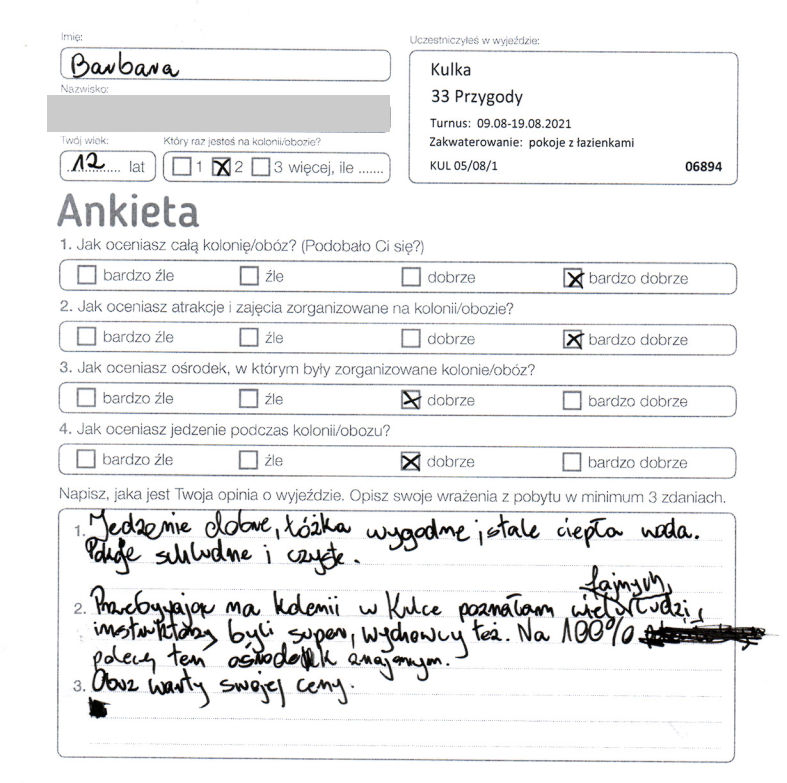 Imię:
Barbara
Nazwisko:
Twój wiek:
12 lat
Który raz jesteś na kolonii/obozie?
1 2 3 więcej, ile .......
Uczestniczyłeś w wyjeździe:
Kulka
33 Przygody
Turnus: 09.08-19.08.2021
Zakwaterowanie: pokoje z łazienkami
KUL 05/08/1 06894
Ankieta
1. Jak oceniasz całą kolonię/obóz? (Podobało Ci się?)
bardzo źle źle dobrze bardzo dobrze
2. Jak oceniasz atrakcje i zajęcia zorganizowane na kolonii/obozie?
bardzo źle źle dobrze bardzo dobrze
3. Jak oceniasz ośrodek, w którym były zorganizowane kolonie/obóz?
bardzo źle źle dobrze bardzo dobrze
4. Jak oceniasz jedzenie podczas kolonii/obozu?
bardzo źle źle dobrze bardzo dobrze
Napisz, jaka jest Twoja opinia o wyjeździe. Opisz swoje wrażenia z pobytu w minimum 3 zdaniach.
1. Jedzenie dobre, łóżka wygodne, stale ciepła woda.
Pokoje schludne i czyste.
fajnych
2. Przebywając na kolonii w Kulce poznałam wielu ludzi,
instruktorzy byli super, wychowcy też. Na 100%
polecę ten ośrodek znajomym.
3. Obóz warty swojej ceny.